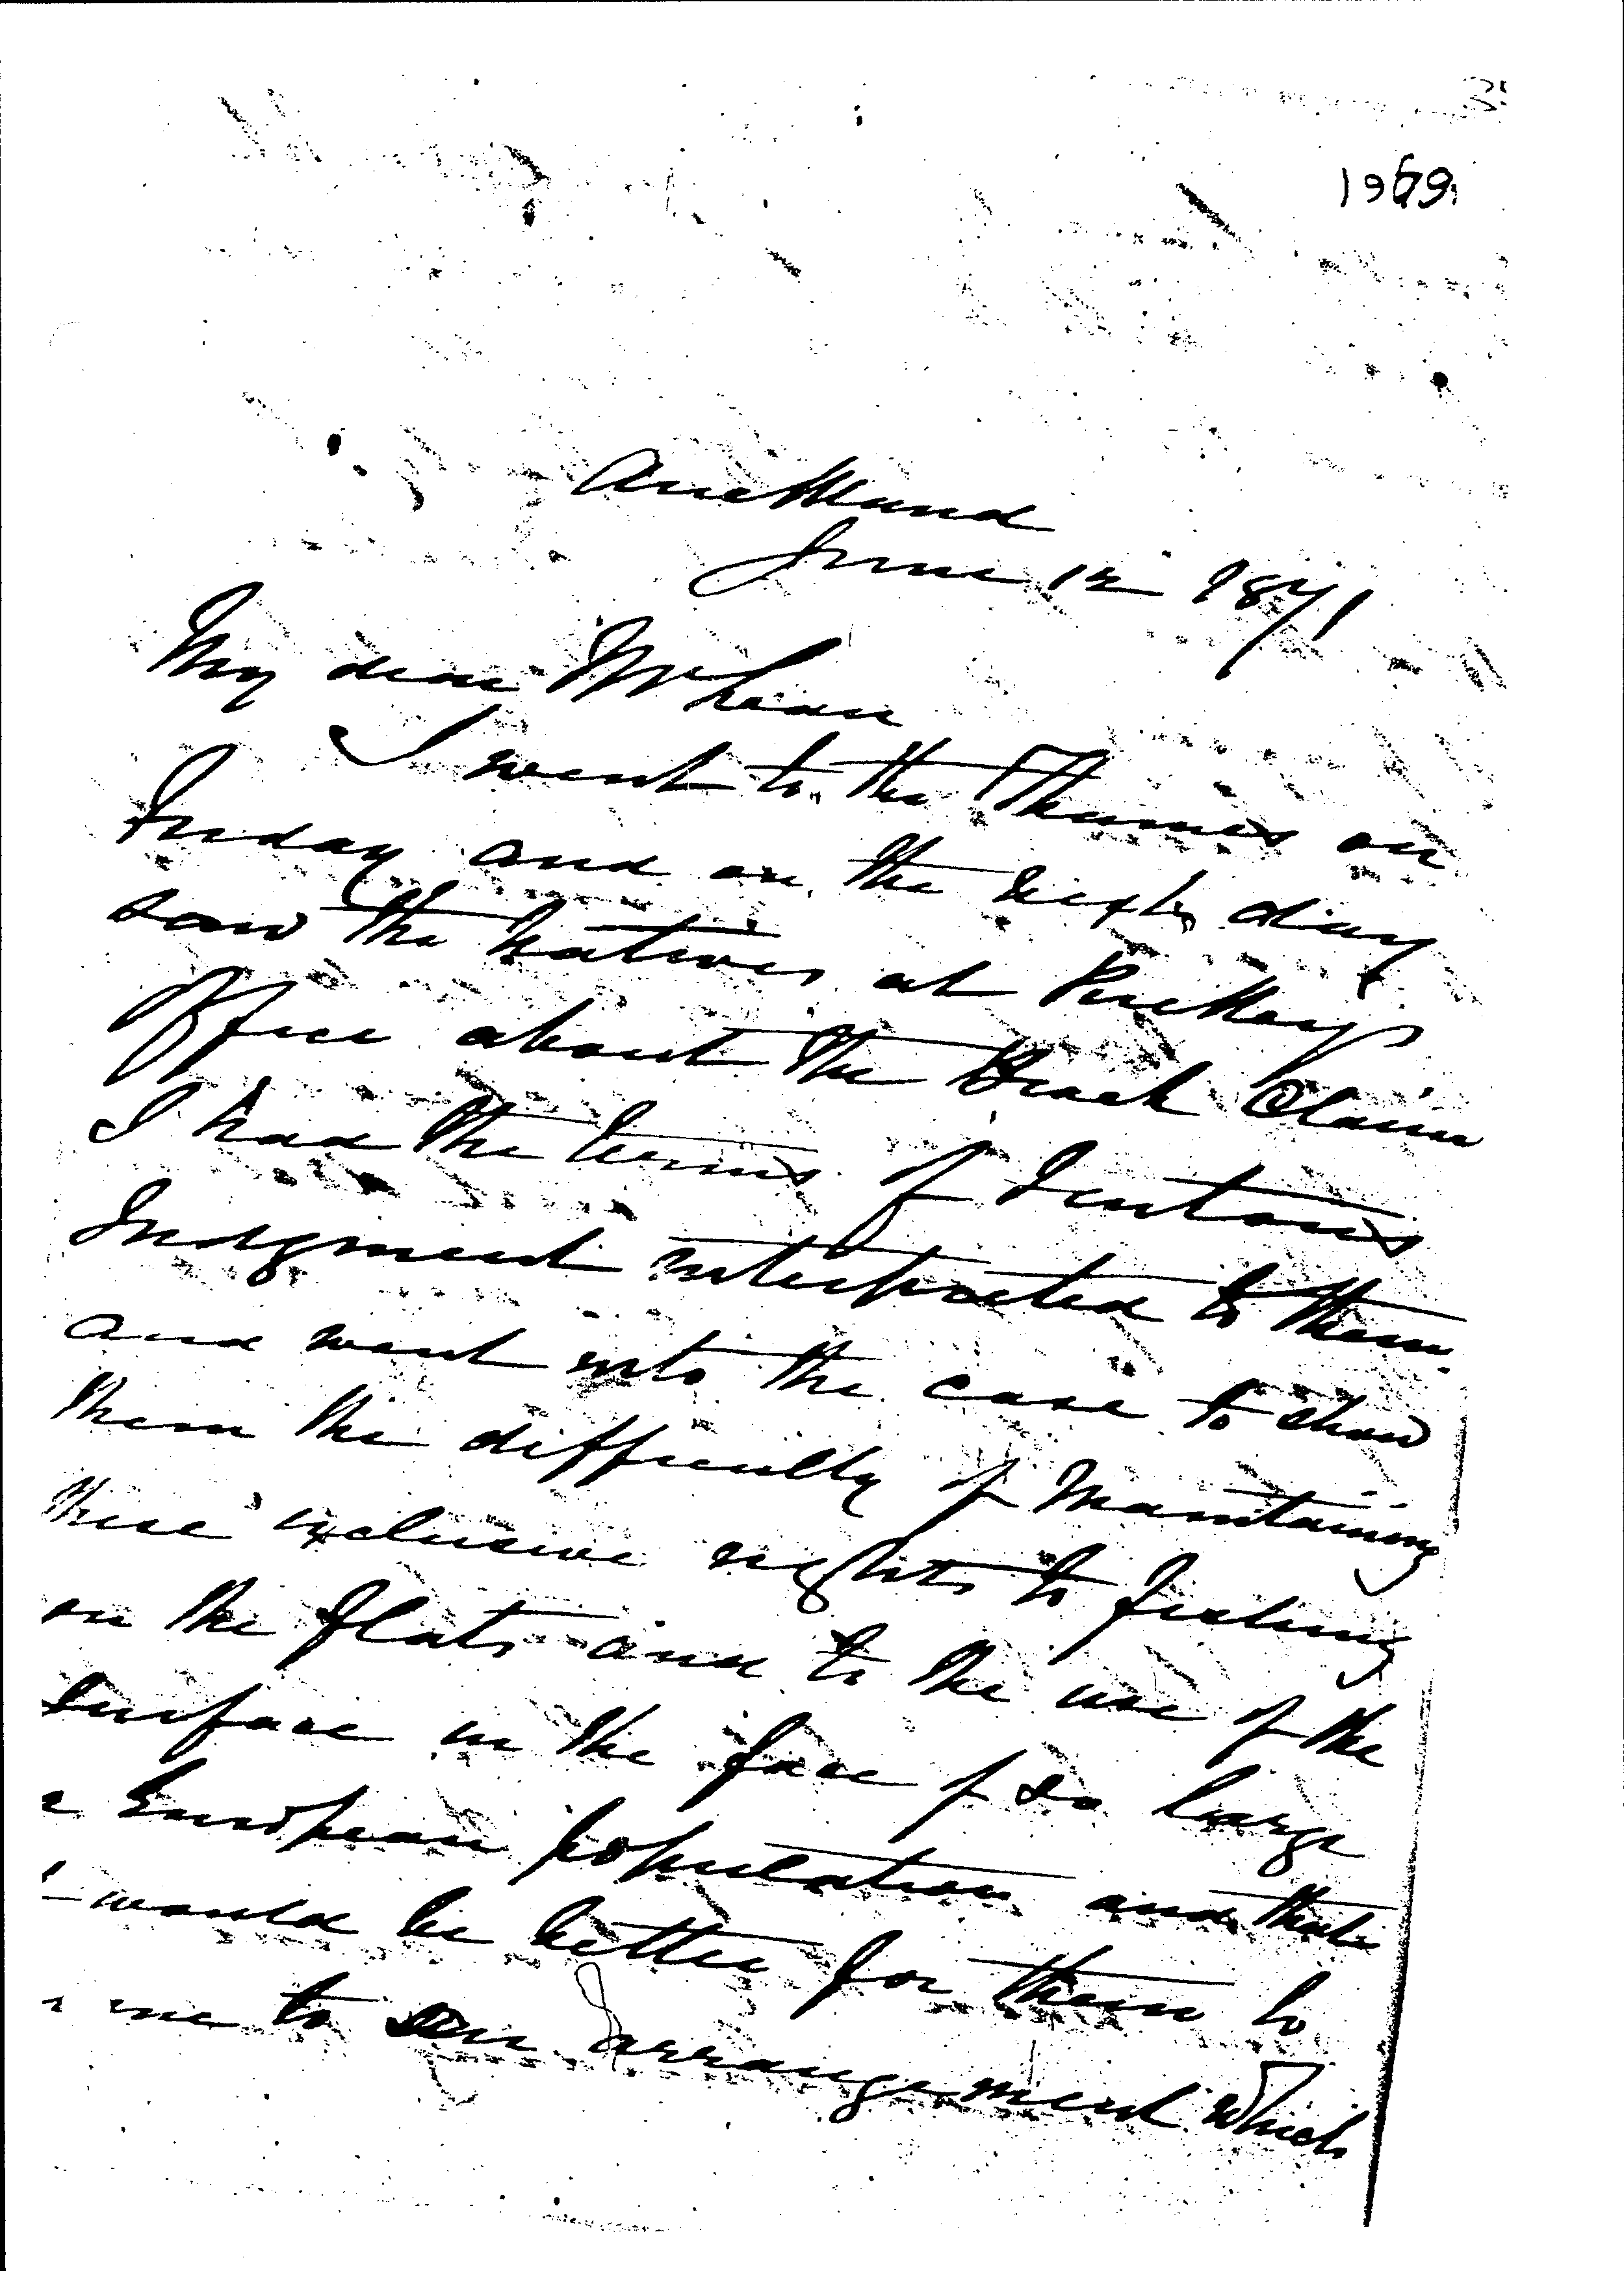 1969
Auckland
June 12 1871
My dear McLean
I went to the Thames on
Friday and on the next day
saw the Natives at Puckeys
Office about the Beach Claim
I had the terms of Fentons
Judgment interpreted to them
and went into the case to show
them the difficulty of maintaining
these exclusive rights to fishing
on the flats and to the use of the
surface in the face of so large
a European population and that
would be better for them to
me to an arrangement which